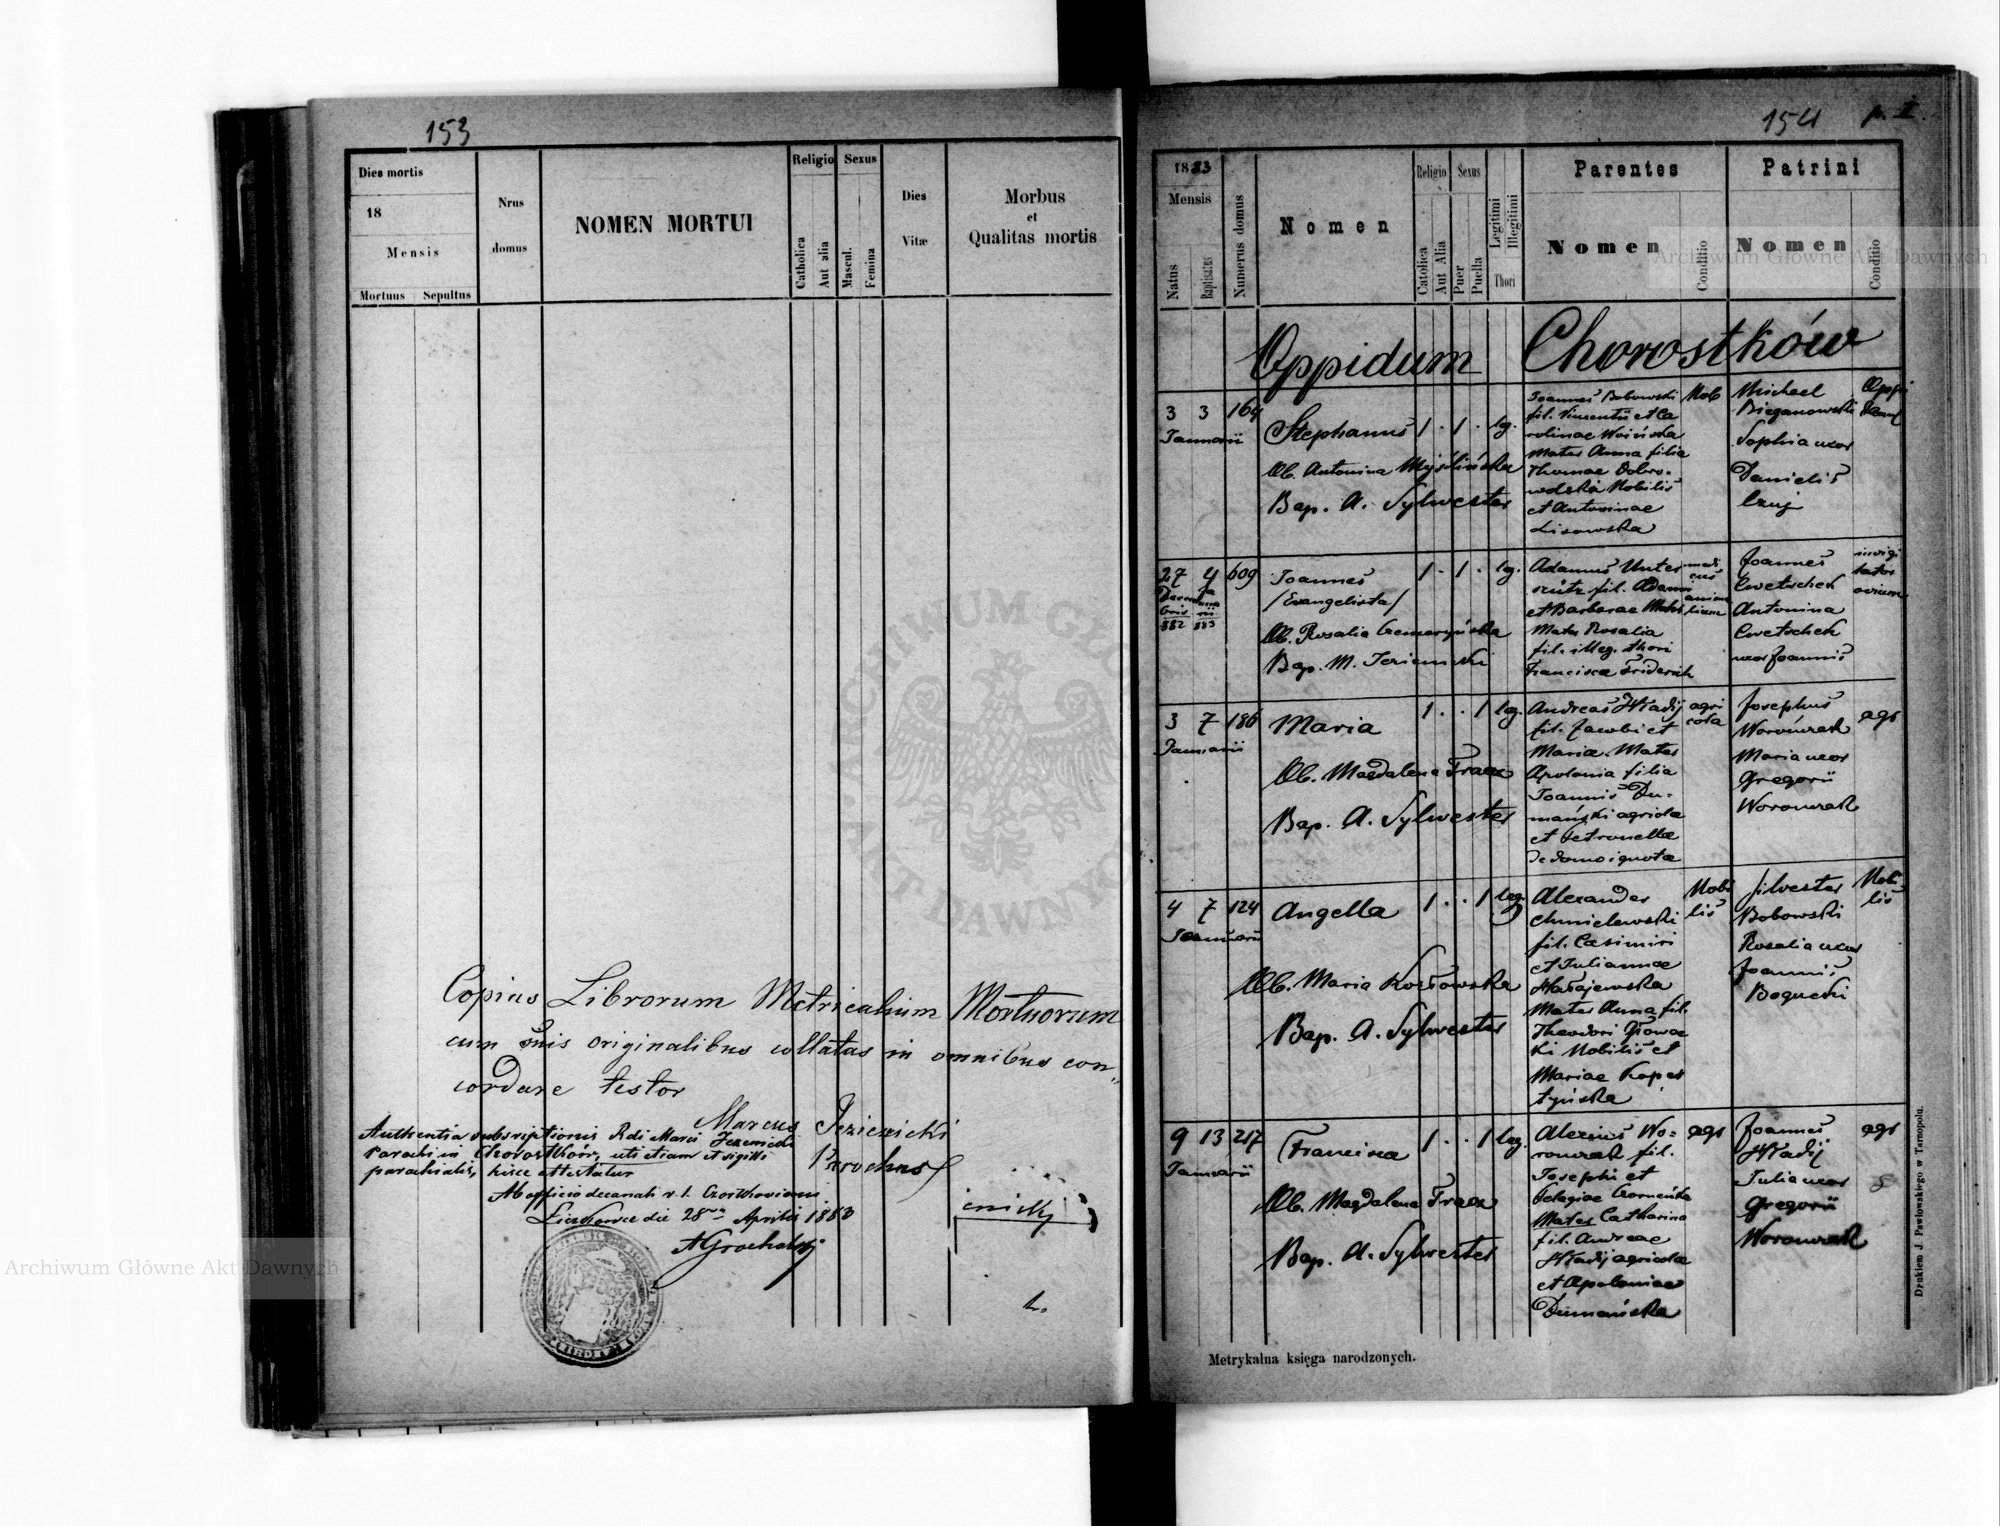 153
Dies mortis
18
Mensis
Mortuus Sepultus
Nrus
domus
NOMEN MORTUI
Religio
Catholica
Aut alia
Sexus
Mascul.
Femina
Dies
Vitæ
Morbus
et
Qualitas mortis
Copias Librorum Metricalium Mortuorum
cum suis originalibus collatas in omnibus con„
cordare testor
Marcus
Parochus
Authentia subscriptionis Rdi Marci
Parochi in Chorostków, uti etiam et sigilli
parochialis, hisce attestatur
Ab officio decanali r. l.
die 28va Aprilis 1883
154 p. I.
1883
Mensis
Natus
Baptisatus
Numerus domus
Nomen
Religio
Catolica
Aut Alia
Sexus
Puer
Puella
Legitimi
Illegitimi
Thori
Parentes
Nomen
Conditio
Patrini
Nomen
Conditio
Oppidum Chorostków
3 3 164
Januarii
Stephanus 1 . 1 . lg.
Ob. Antonina Myślińska
Bap. A. Sylwester
Joannes Bobowski
fil. Vincentii et Ca
rolinae Woińska
Mater Anna filia
Thomae Dobro-
wolski Nobilis
et Antoninae
Lisowska
Nob
Michael
Bieganowski
Sophia uxor
Danielis
27 4 609
882 883
Joannes
/Evangelista/
1 . 1 . lg.
Ob. Rosalia
Bap. M.
Adamus
fil. Adami
et Barbarae
Mater Rosalia
fil. illeg. thori
Francisca Friderich
Joannes
Cwetschek
Antonina
Cwetschek
uxor Joannis
3 7 186
Januarii
Maria 1 . . 1 leg.
Ob. Magdalena Tracz
Bap. A. Sylwester
Andreas Hładij
fil. Jacobi et
Maria. Mater
Apolonia filia
Joannis Du-
mański agricolæ
et Petronellæ
de domo ignotæ
agri
cola
Josephus
Worończak
Maria uxor
Gregorii
Woronczak
agr
4 7 124
Januarii
Angella 1 . . 1 leg.
Ob. Maria Kozłowska
Bap. A. Sylwester
Alexander
Chmielewski
fil. Casimiri
et Juliannæ
Hałajewska
Mater Anna fil.
Theodori Głowac
ki Nobilis et
Mariae Koper
tyńska
Nobi
lis
Silvester
Bobowski
Rosalia uxor
Joannis
Bogucki
Nobi
lis
9 13 217
Januarii
Francisca 1 . . 1 leg.
Ob. Magdalena Tracz
Bap. A. Sylwester
Alexius Wo-
ronczak fil.
Josephi et
Pelagiae
Mater Catharina
fil. Andreae
Hładij agricolæ
et Apoloniae
Dumańska
agr
Joannes
Hładij
Julia uxor
Gregorii
Woronczak
agr
Metrykalna księga narodzonych.
Drukiem J. Pawłowskiego w Tarnopolu.
ARCHIWUM GŁÓWNE
AKT DAWNYCH
Archiwum Główne Akt Dawnych
Archiwum Główne Akt Dawnych